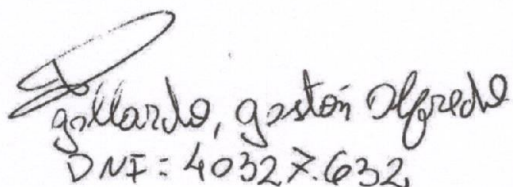 Gallardo, Gastón Alfredo
DNI: 40327.632